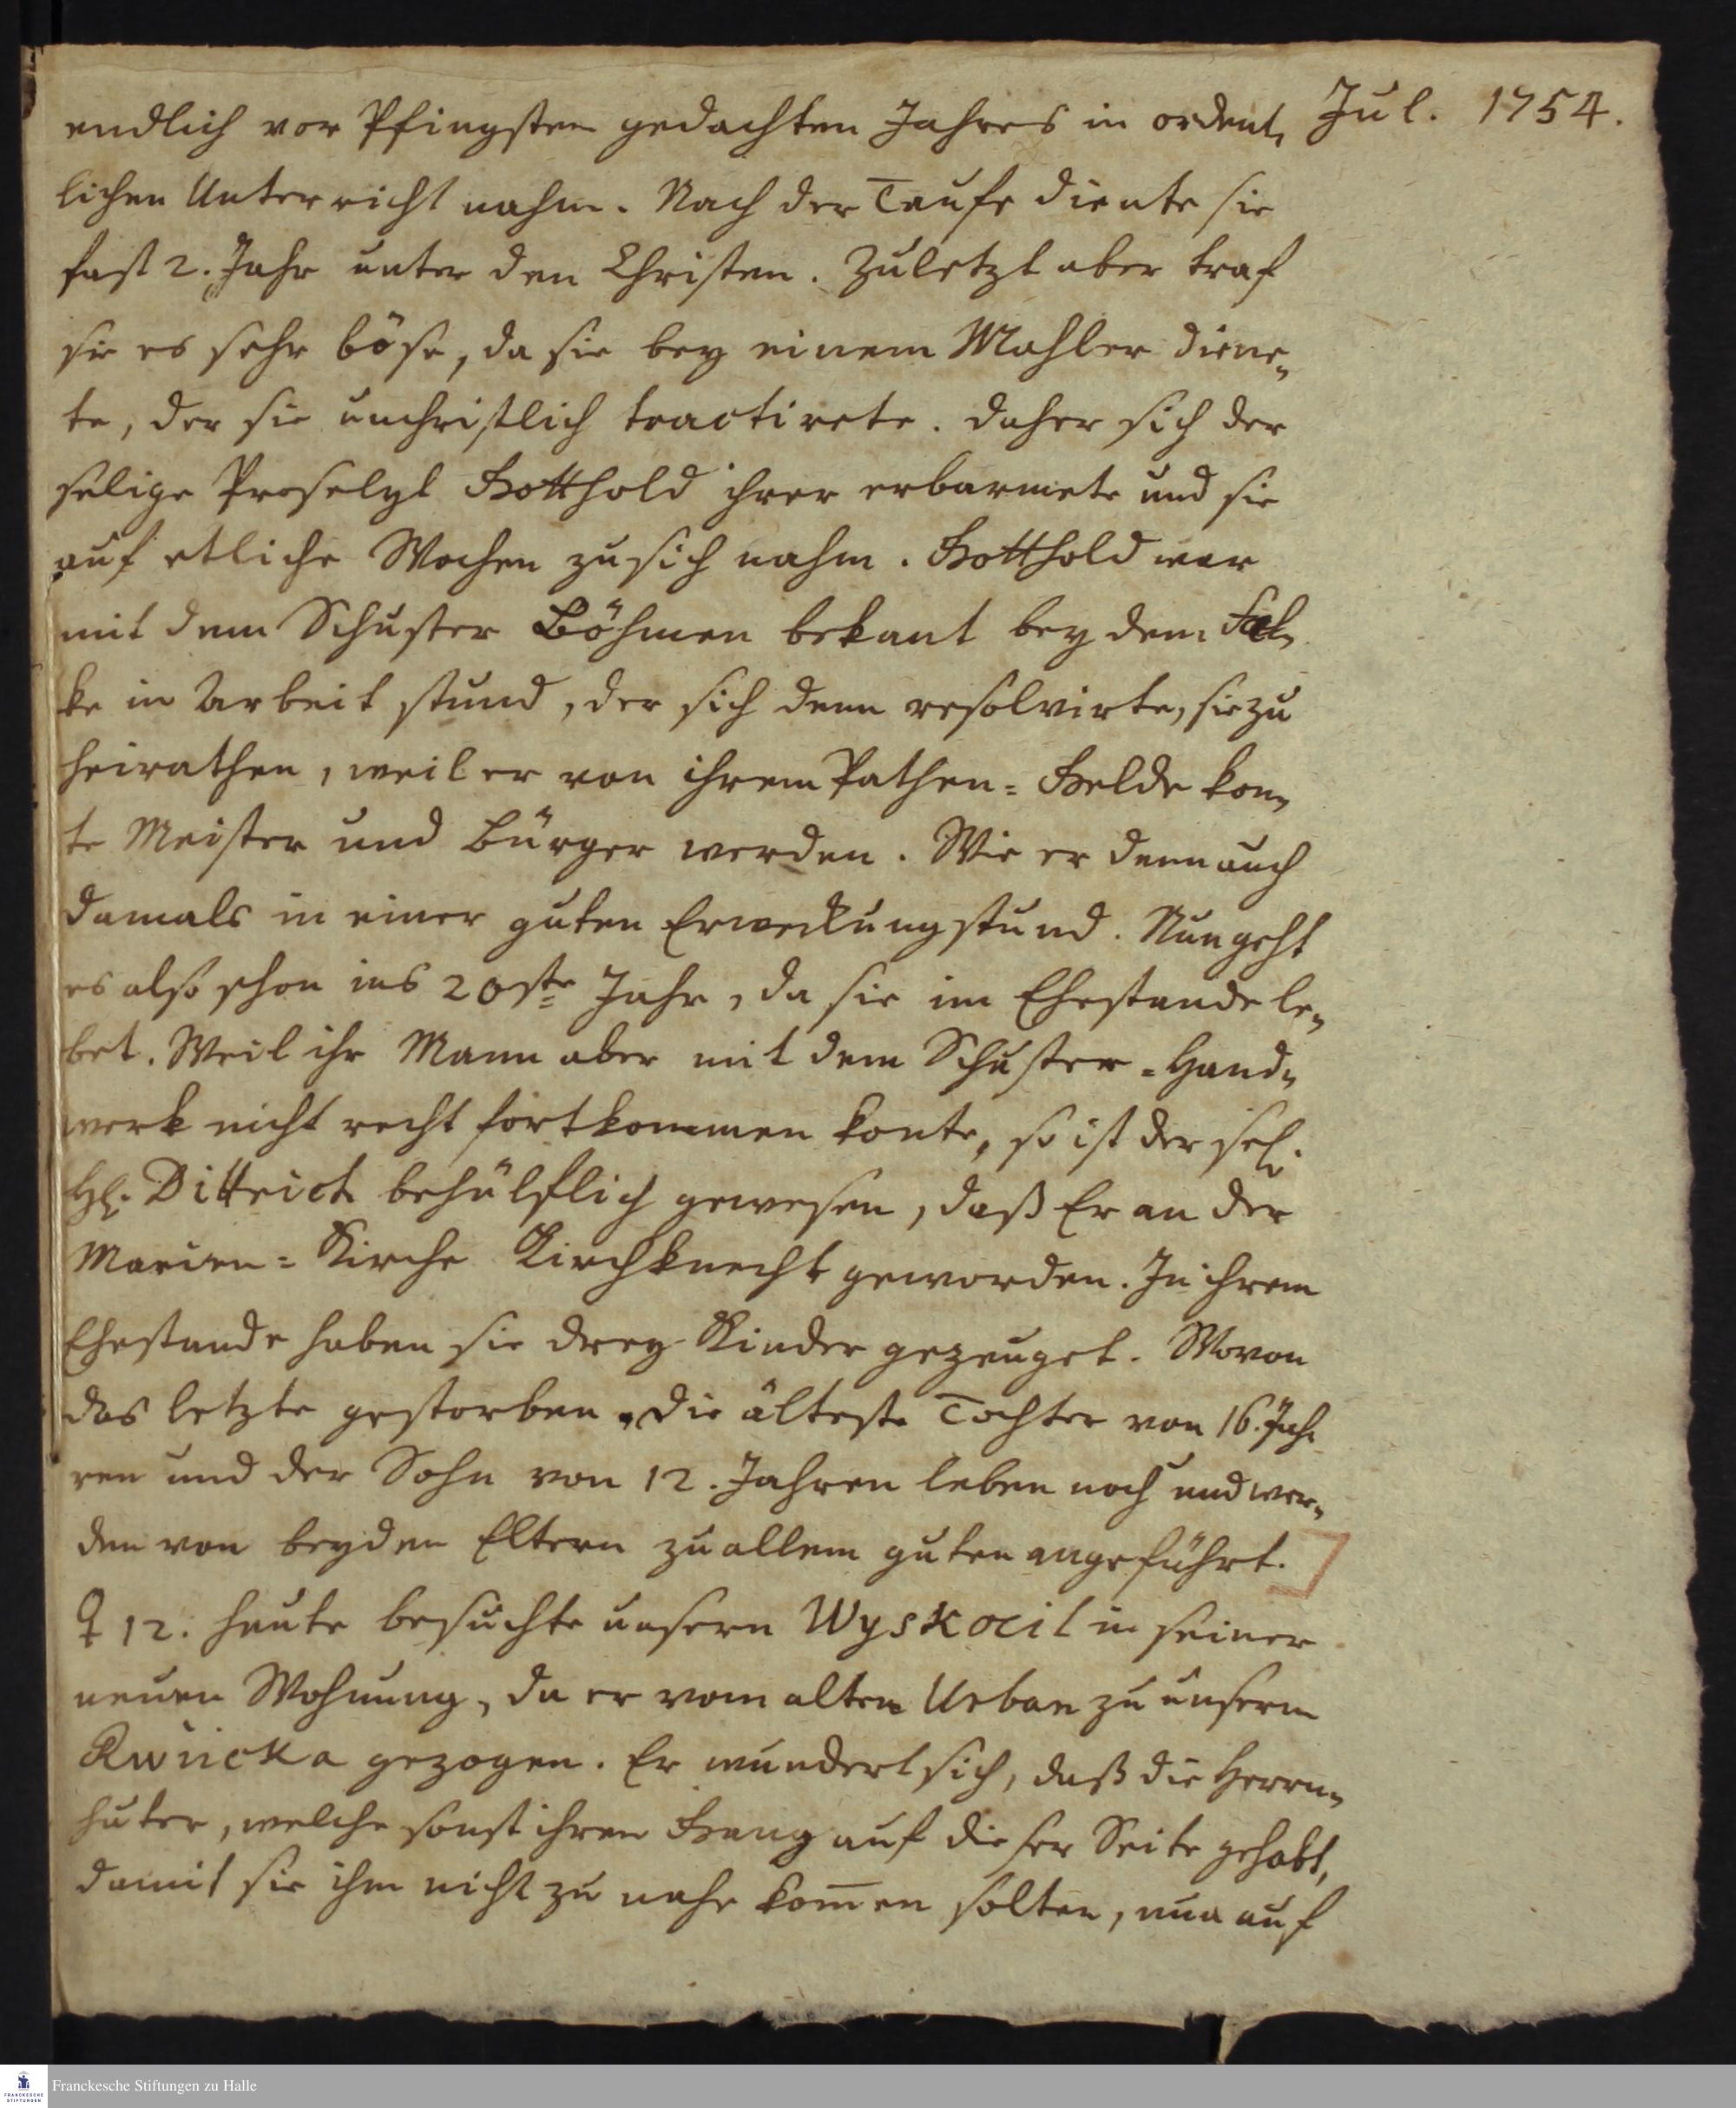 Jul. 1754.
endlich vor Pfingsten gedachten Jahres in ordent„
lichen Unterricht nahm. Nach der Taufe diente sie
fast 2. Jahr unter den Christen. Zuletzt aber traf
sie es sehr böse, da sie bey einem Mahler diene„
te, der sie unchristlich tractirete. Daher sich der
selige Proselyt Gotthold ihrer erbarmete und sie
auf etliche Wochen zu sich nahm. Gotthold war
mit dem Schuster Böhmen bekant bey dem
ke in Arbeit stund, der sich denn resolvirte, sie zu
heirathen, weil er von ihrem Pathen=Gelde kon„
te Meister und Bürger werden. Wie er denn auch
damals in einer guten Erweckung stund. Nun geht
es also schon ins 20ste Jahr, da sie im Ehestande le„
bet. Weil ihr Mann aber mit dem Schuster=Hand„
werk nicht recht fortkommen konte, so ist der sel.
H. Dittrich behülflich gewesen, daß Er an der
Marien=Kirche Kirchknecht geworden. In ihrem
Ehestande haben sie drey Kinder gezeuget. Wovon
das letzte gestorben. Die älteste Tochter von 16. Jah
ren und der Sohn von 12. Jahren leben noch und wer„
den von beyden Eltern zu allem guten angeführt.]
♀ 12. heute besuchte unsern Wyskocil in seiner
neuen Wohnung, da er vom alten Urban zu unserm
Kwiicka gezogen. Er wundert sich, daß die Herrn„
huter, welche sonst ihren Gang auf dieser Seite gehabt,
damit sie ihm nicht zu nahe kom̅en solten, nun auf
Franckesche Stiftungen zu Halle
FRANCKESCHE
STIFTUNGEN